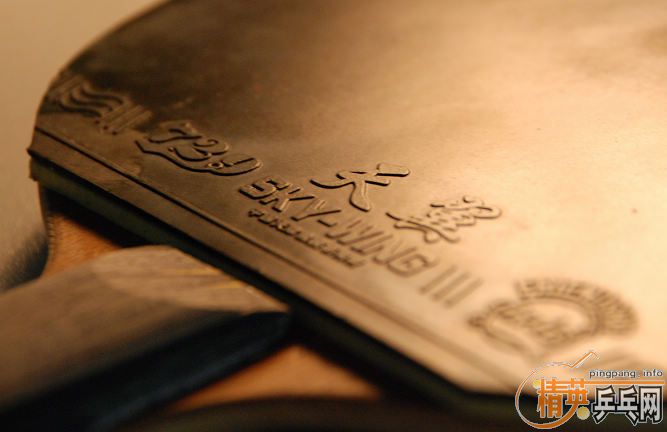 729
天翼
SKY-WING III
FRIENDSHIP
pingpang.info
精英乒乓网